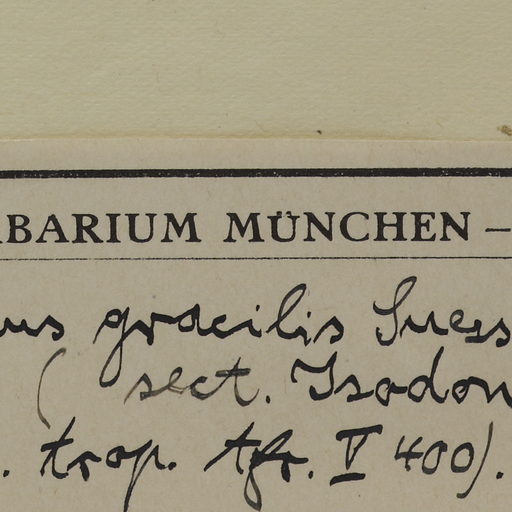 RBARIUM MÜNCHEN –
us gracilis Suess
( sect. Isodon
. trop. Afr. V 400).